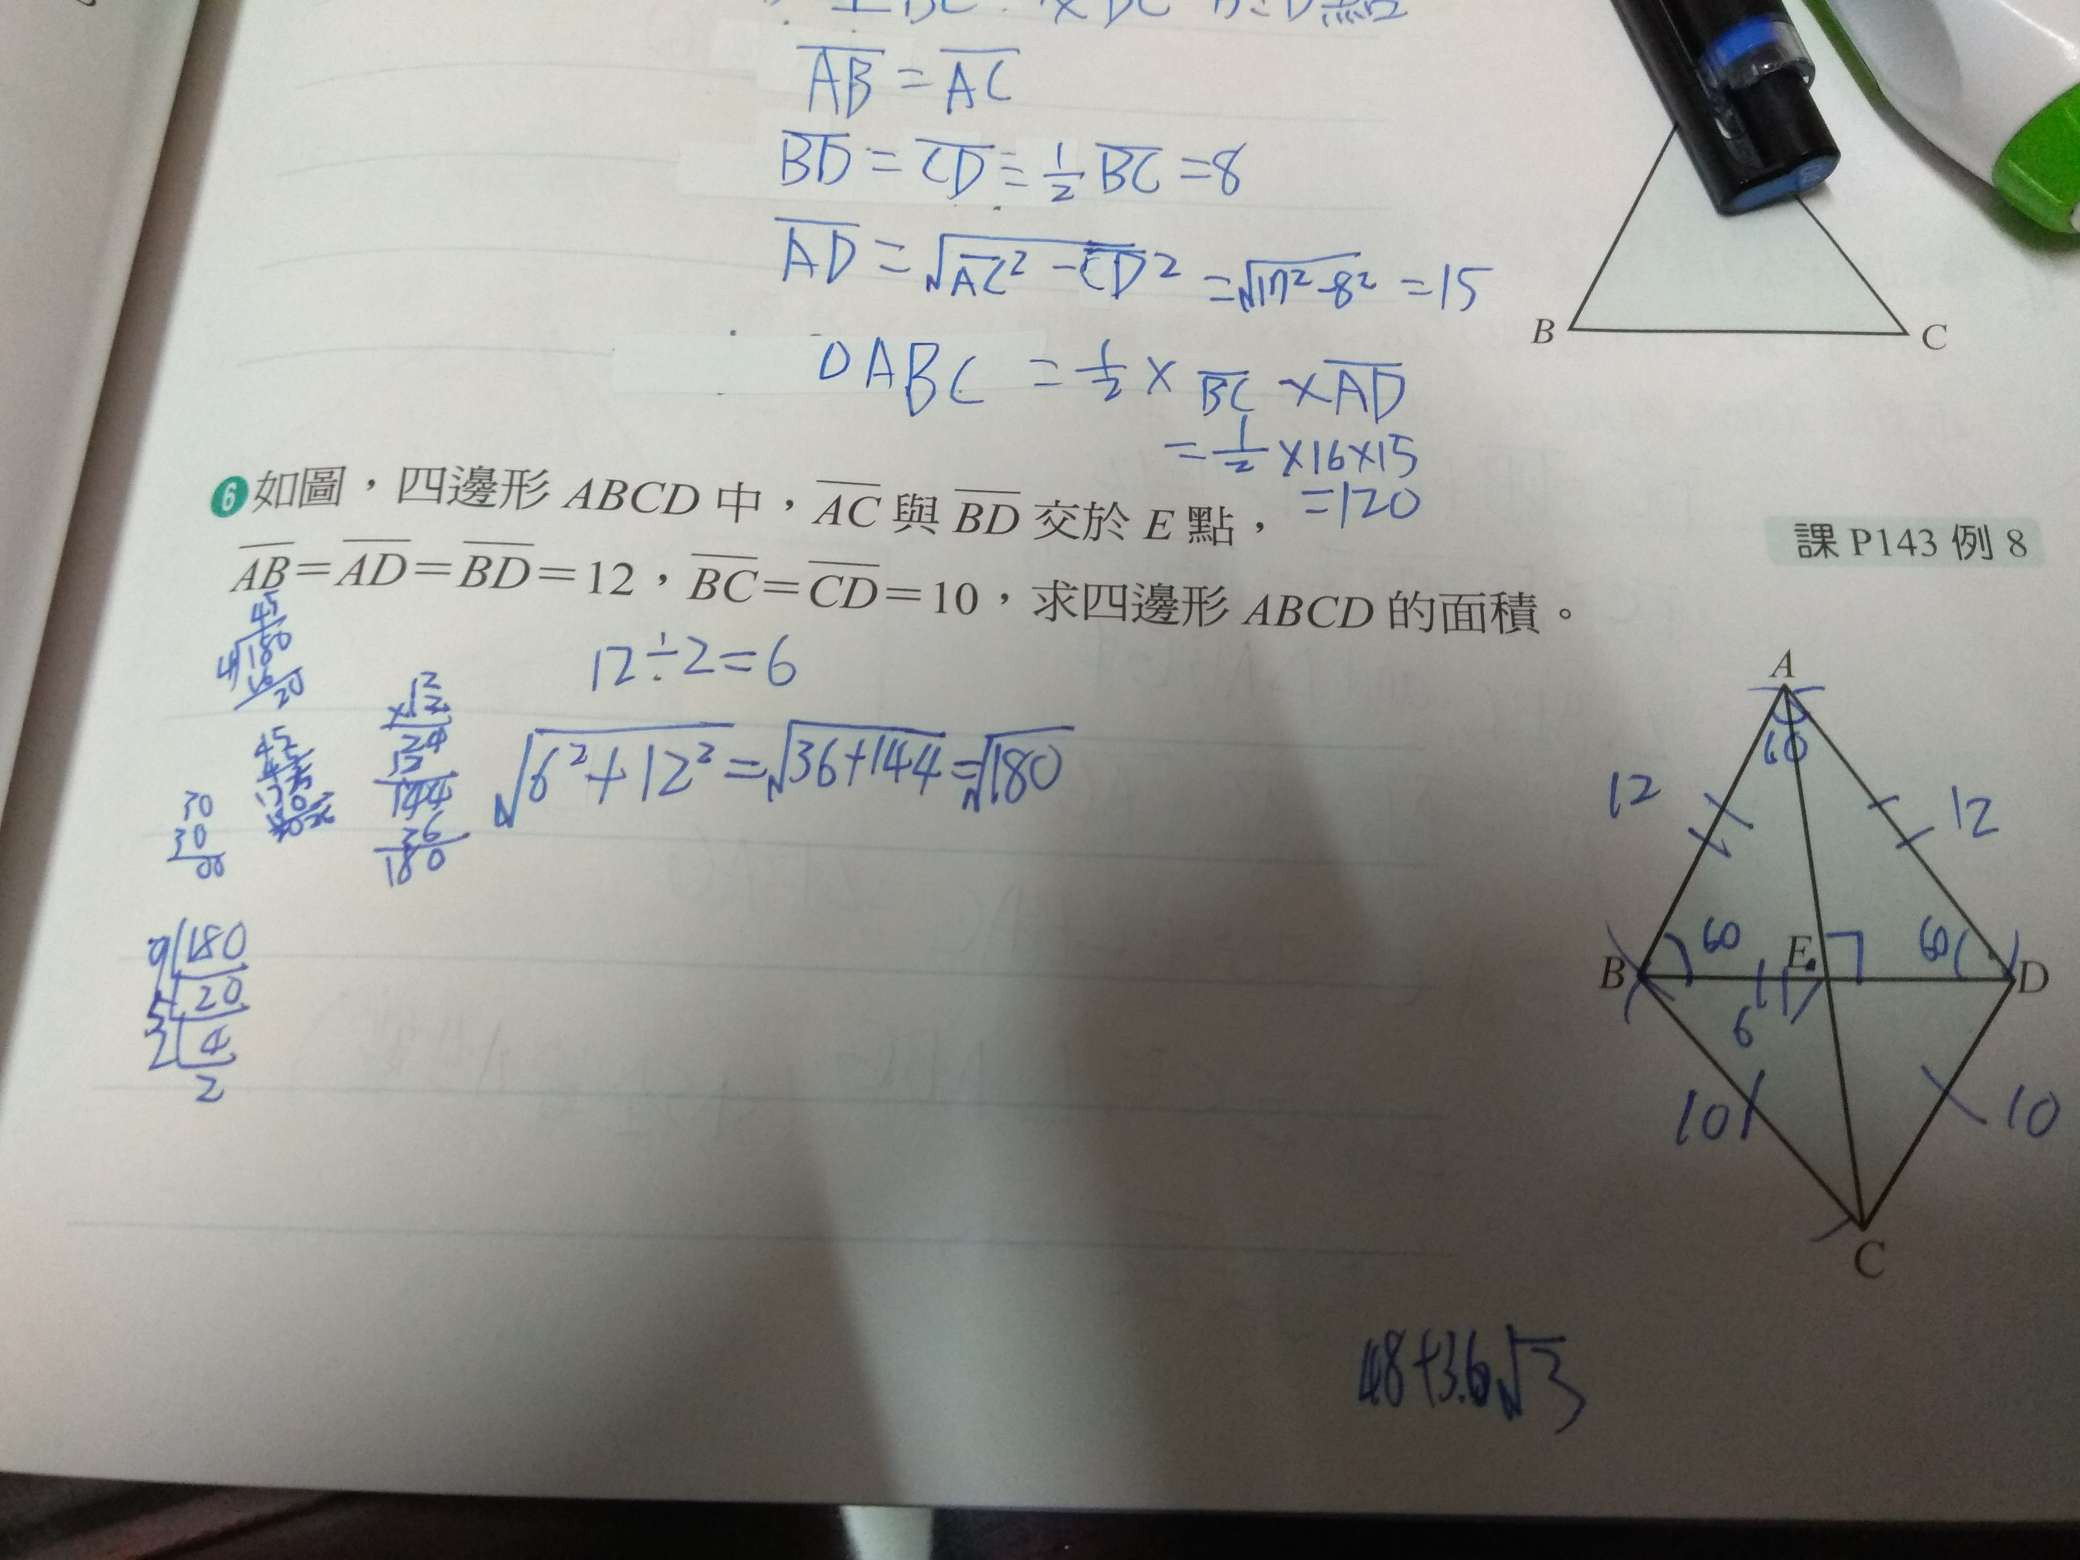 AB = AC
BD = CD = 1/2 BC = 8
AD = √AC² - CD² = √17² - 8² = 15
B
C
△ABC = 1/2 × BC × AD
= 1/2 × 16 × 15
= 120
6 如圖，四邊形 ABCD 中，AC 與 BD 交於 E 點，
課 P143 例 8
AB＝AD＝BD＝12，BC＝CD＝10，求四邊形 ABCD 的面積。
12 ÷ 2 = 6
√6² + 12² = √36 + 144 = √180
45
4 180
16
20
×12
24
144
36
180
30
30
9 180
5 20
2 4
2
A
60
12
12
B
60
E
60
D
6
10
10
C
48+36√3